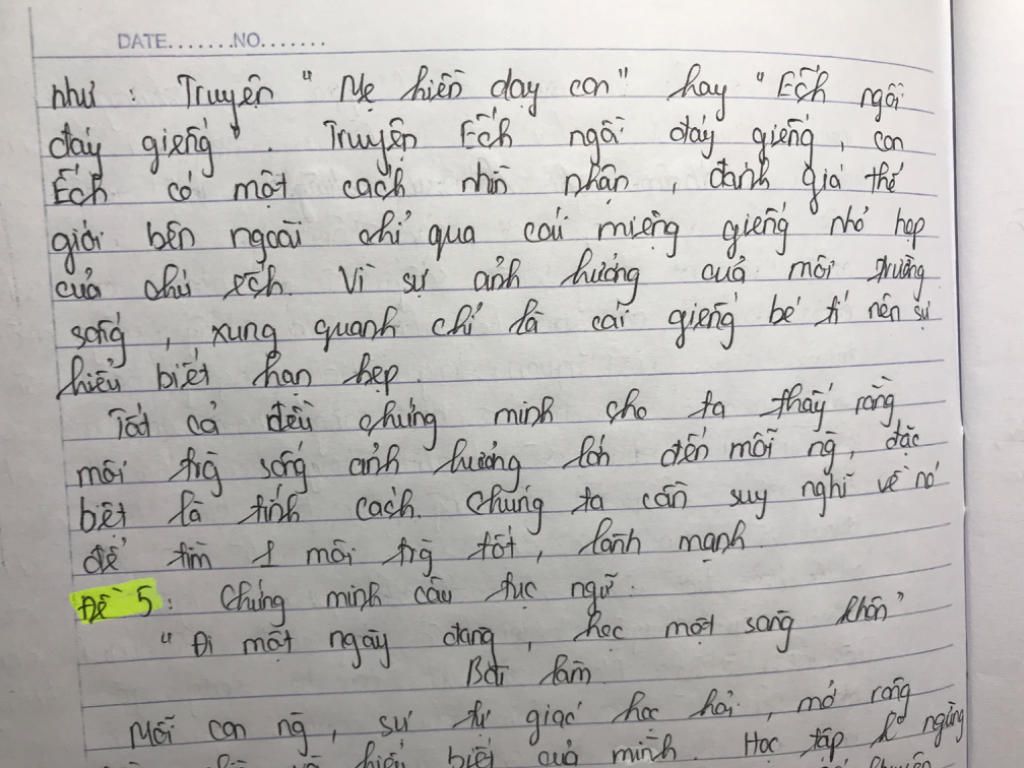 DATE.......NO.......
như : Truyện "Mẹ hiền dạy con" hay "Ếch ngồi
đáy giếng". Truyện Ếch ngồi đáy giếng, con
Ếch có một cách nhìn nhận, đánh giá thế
giới bên ngoài chỉ qua cái miệng giếng nhỏ hẹp
của chú ếch. Vì sự ảnh hưởng của môi trường
sống, xung quanh chỉ là cái giếng bé tí nên sự
hiểu biết hạn hẹp.
Tất cả đều chứng minh cho ta thấy rằng
môi trg sống ảnh hưởng lớn đến mỗi ng, đặc
biệt là tính cách. Chúng ta cần suy nghĩ về nó
để tìm 1 môi trg tốt, lành mạnh.
Đề 5 : Chứng minh câu tục ngữ.
"Đi một ngày đàng, học một sàng khôn"
Bài làm
Mỗi con ng, sự tự giác học hỏi, mở rộng
hiểu biết của mình. Học tập k ngừng